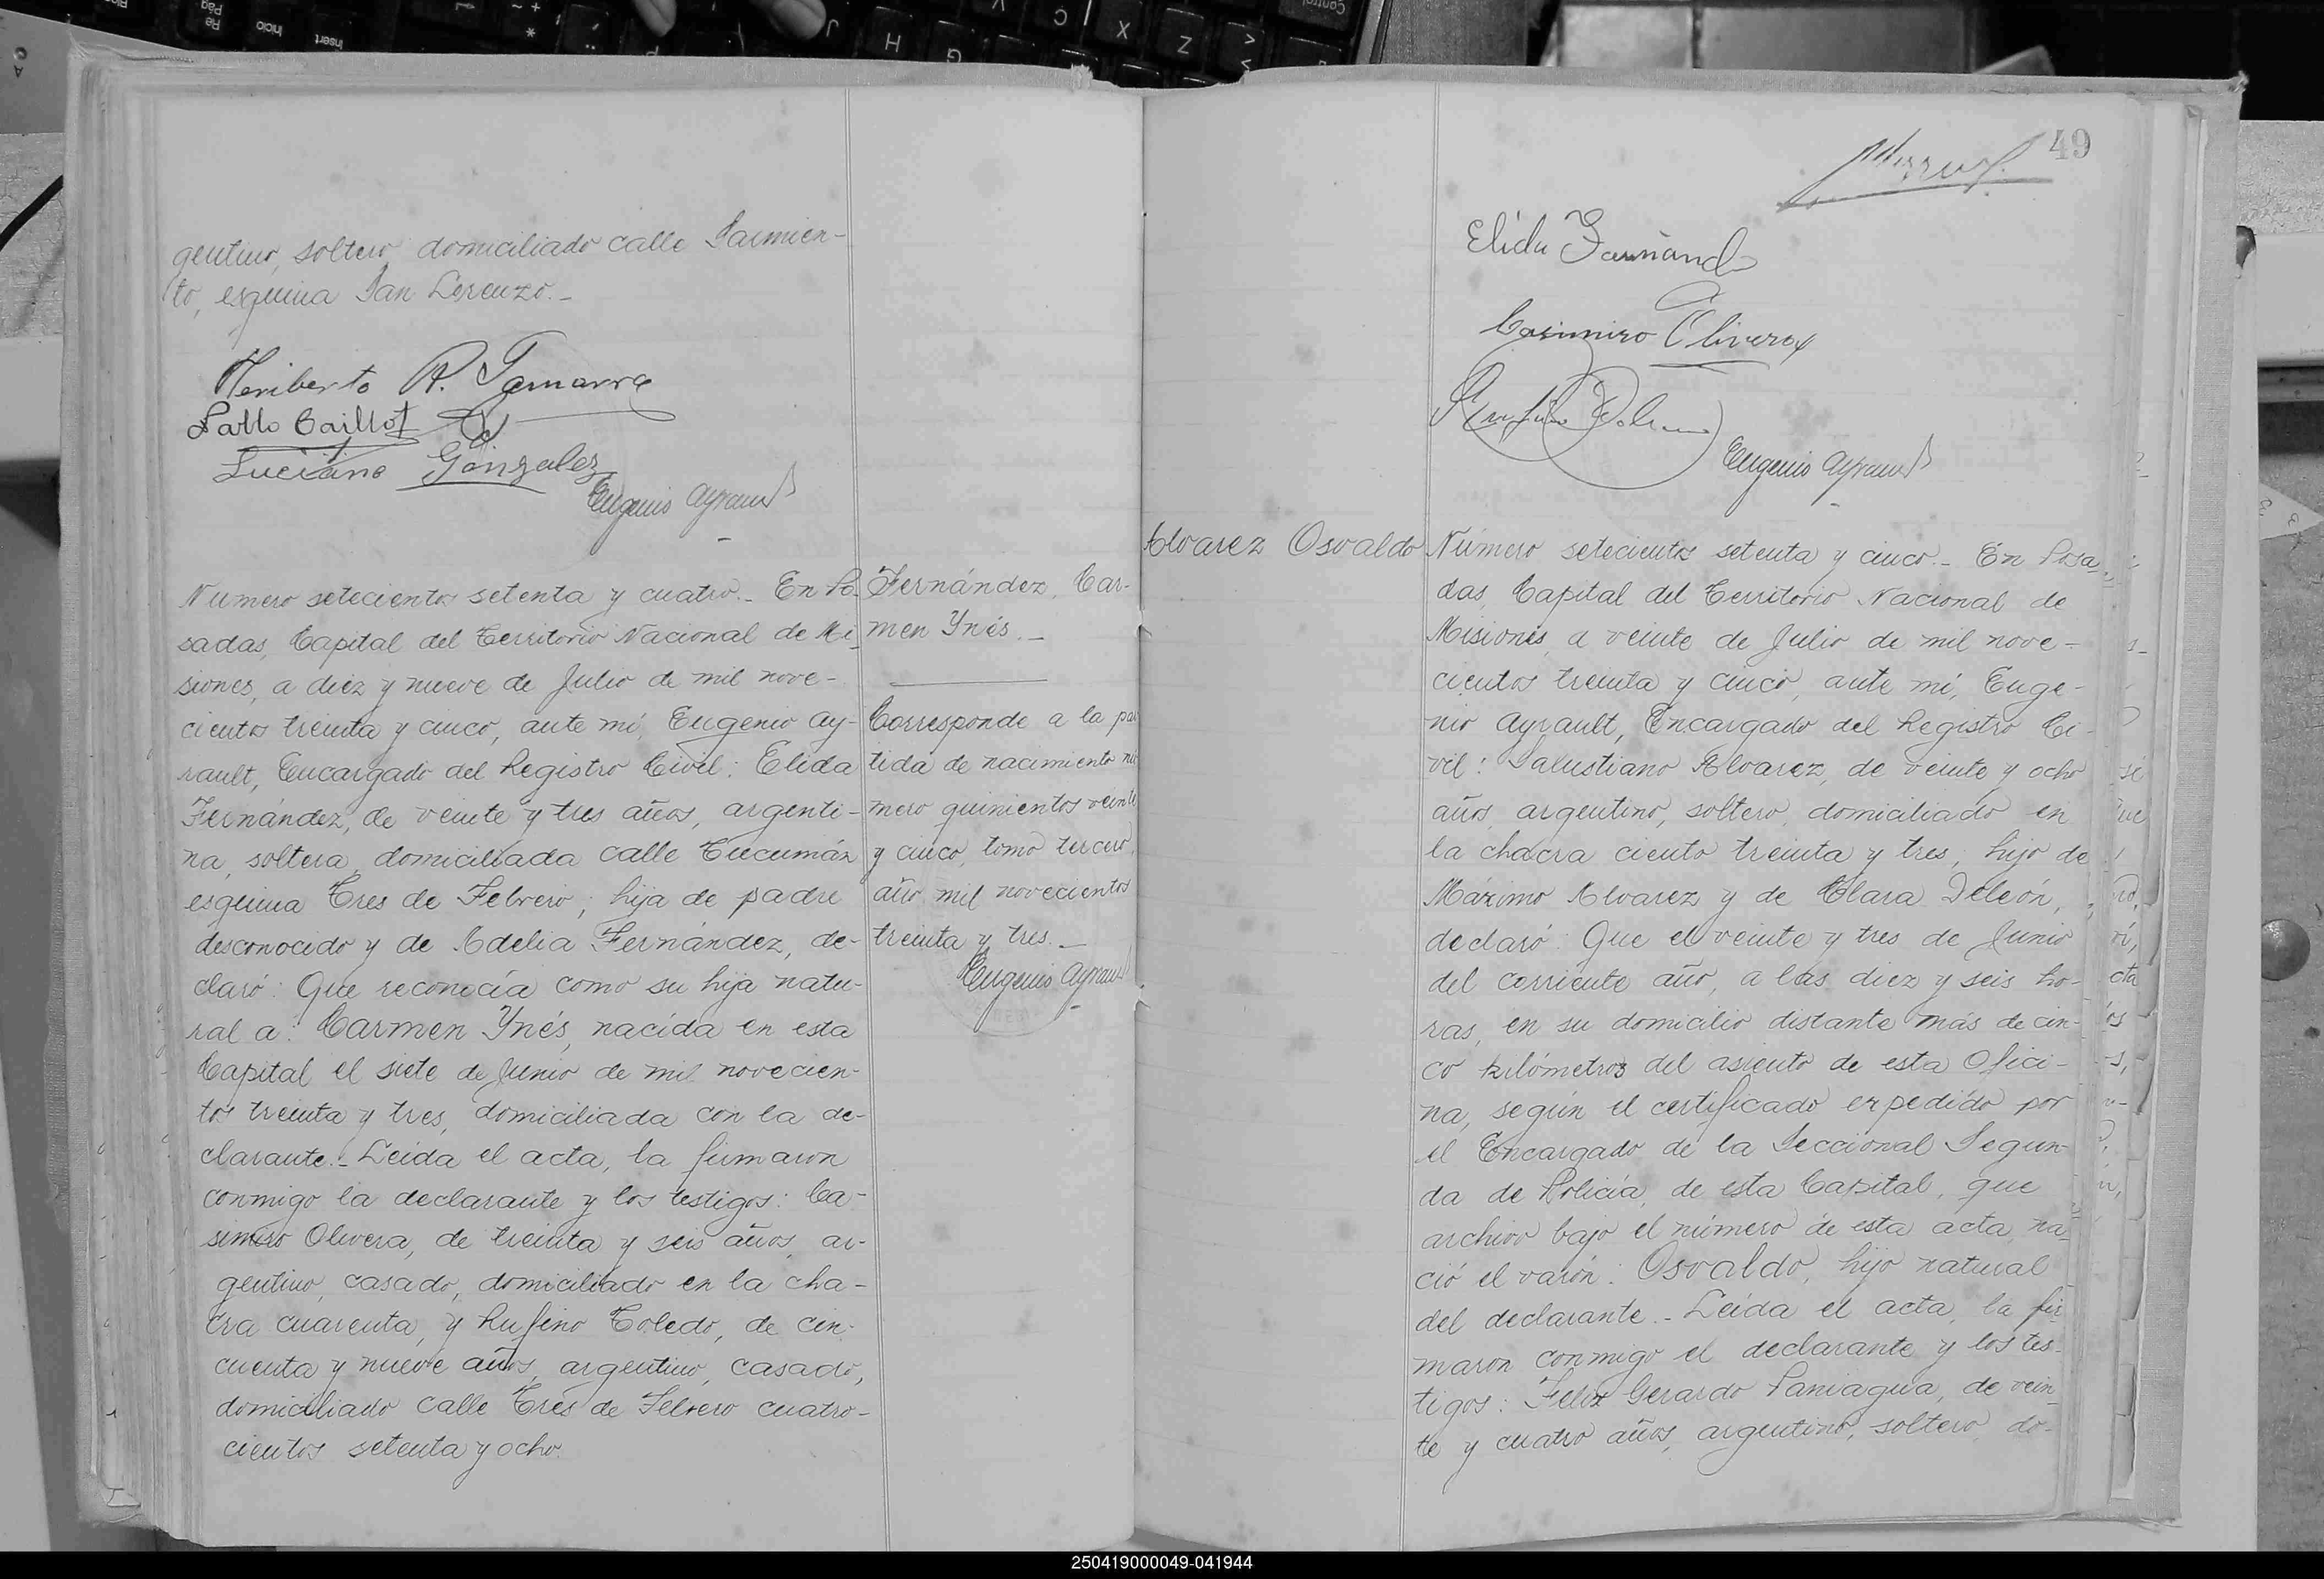 gentino, soltero, domiciliado calle Sarmien-
to, esquina San Lorenzo.-
Heriberto R. Gamarra
Pablo Caillot
Luciano Gonzalez
Eugenio Ayrault
Número setecientos setenta y cuatro.- En Po-
sadas, Capital del Territorio Nacional de Mi-
siones, a diez y nueve de Julio de mil nove-
cientos treinta y cinco, ante mí, Eugenio Ay-
rault, Encargado del Registro Civil: Elida
Fernández, de veinte y tres años, argenti-
na, soltera, domiciliada calle Tucumán
esquina Tres de Febrero; hija de padre
desconocido y de Adelia Fernández, de-
claró: Que reconocía como su hija natu-
ral a: Carmen Ynés, nacida en esta
Capital el siete de Junio de mil novecien-
tos treinta y tres, domiciliada con la de-
clarante.- Leída el acta, la firmaron
conmigo la declarante y los testigos: Ca-
simiro Olivera, de treinta y seis años, ar-
gentino, casado, domiciliado en la cha-
cra cuarenta, y Rufino Toledo, de cin-
cuenta y nueve años, argentino, casado,
domiciliado calle Tres de Febrero cuatro-
cientos setenta y ocho.
Fernández, Car-
men Ynés.-
Corresponde a la par
tida de nacimiento nú
mero quinientos veinte
y cinco, tomo tercero,
año mil novecientos
treinta y tres.-
Eugenio Ayrault
49
Elida Fernand
Casimiro Olivera
Eugenio Ayrault
Alvarez Osvaldo
Número setecientos setenta y cinco.- En Posa-
das, Capital del Territorio Nacional de
Misiones, a veinte de Julio de mil nove-
cientos treinta y cinco, ante mí, Euge-
nio Ayrault, Encargado del Registro Ci-
vil: Salustiano Alvarez, de veinte y ocho
años, argentino, soltero, domiciliado en
la chacra ciento treinta y tres, hijo de
Máximo Alvarez y de Clara Deleón,
declaró: Que el veinte y tres de Junio
del corriente año, a las diez y seis ho-
ras, en su domicilio distante más de cin-
co kilómetros del asiento de esta Ofici-
na, según el certificado expedido por
el Encargado de la Seccional Segun-
da de Policía, de esta Capital, que
archivo bajo el número de esta acta, na-
ció el varón: Osvaldo, hijo natural
del declarante.- Leída el acta, la fir-
maron conmigo el declarante y los tes-
tigos: Felix Gerardo Paniagua, de vein-
te y cuatro años, argentino, soltero, do-
250419000049-041944